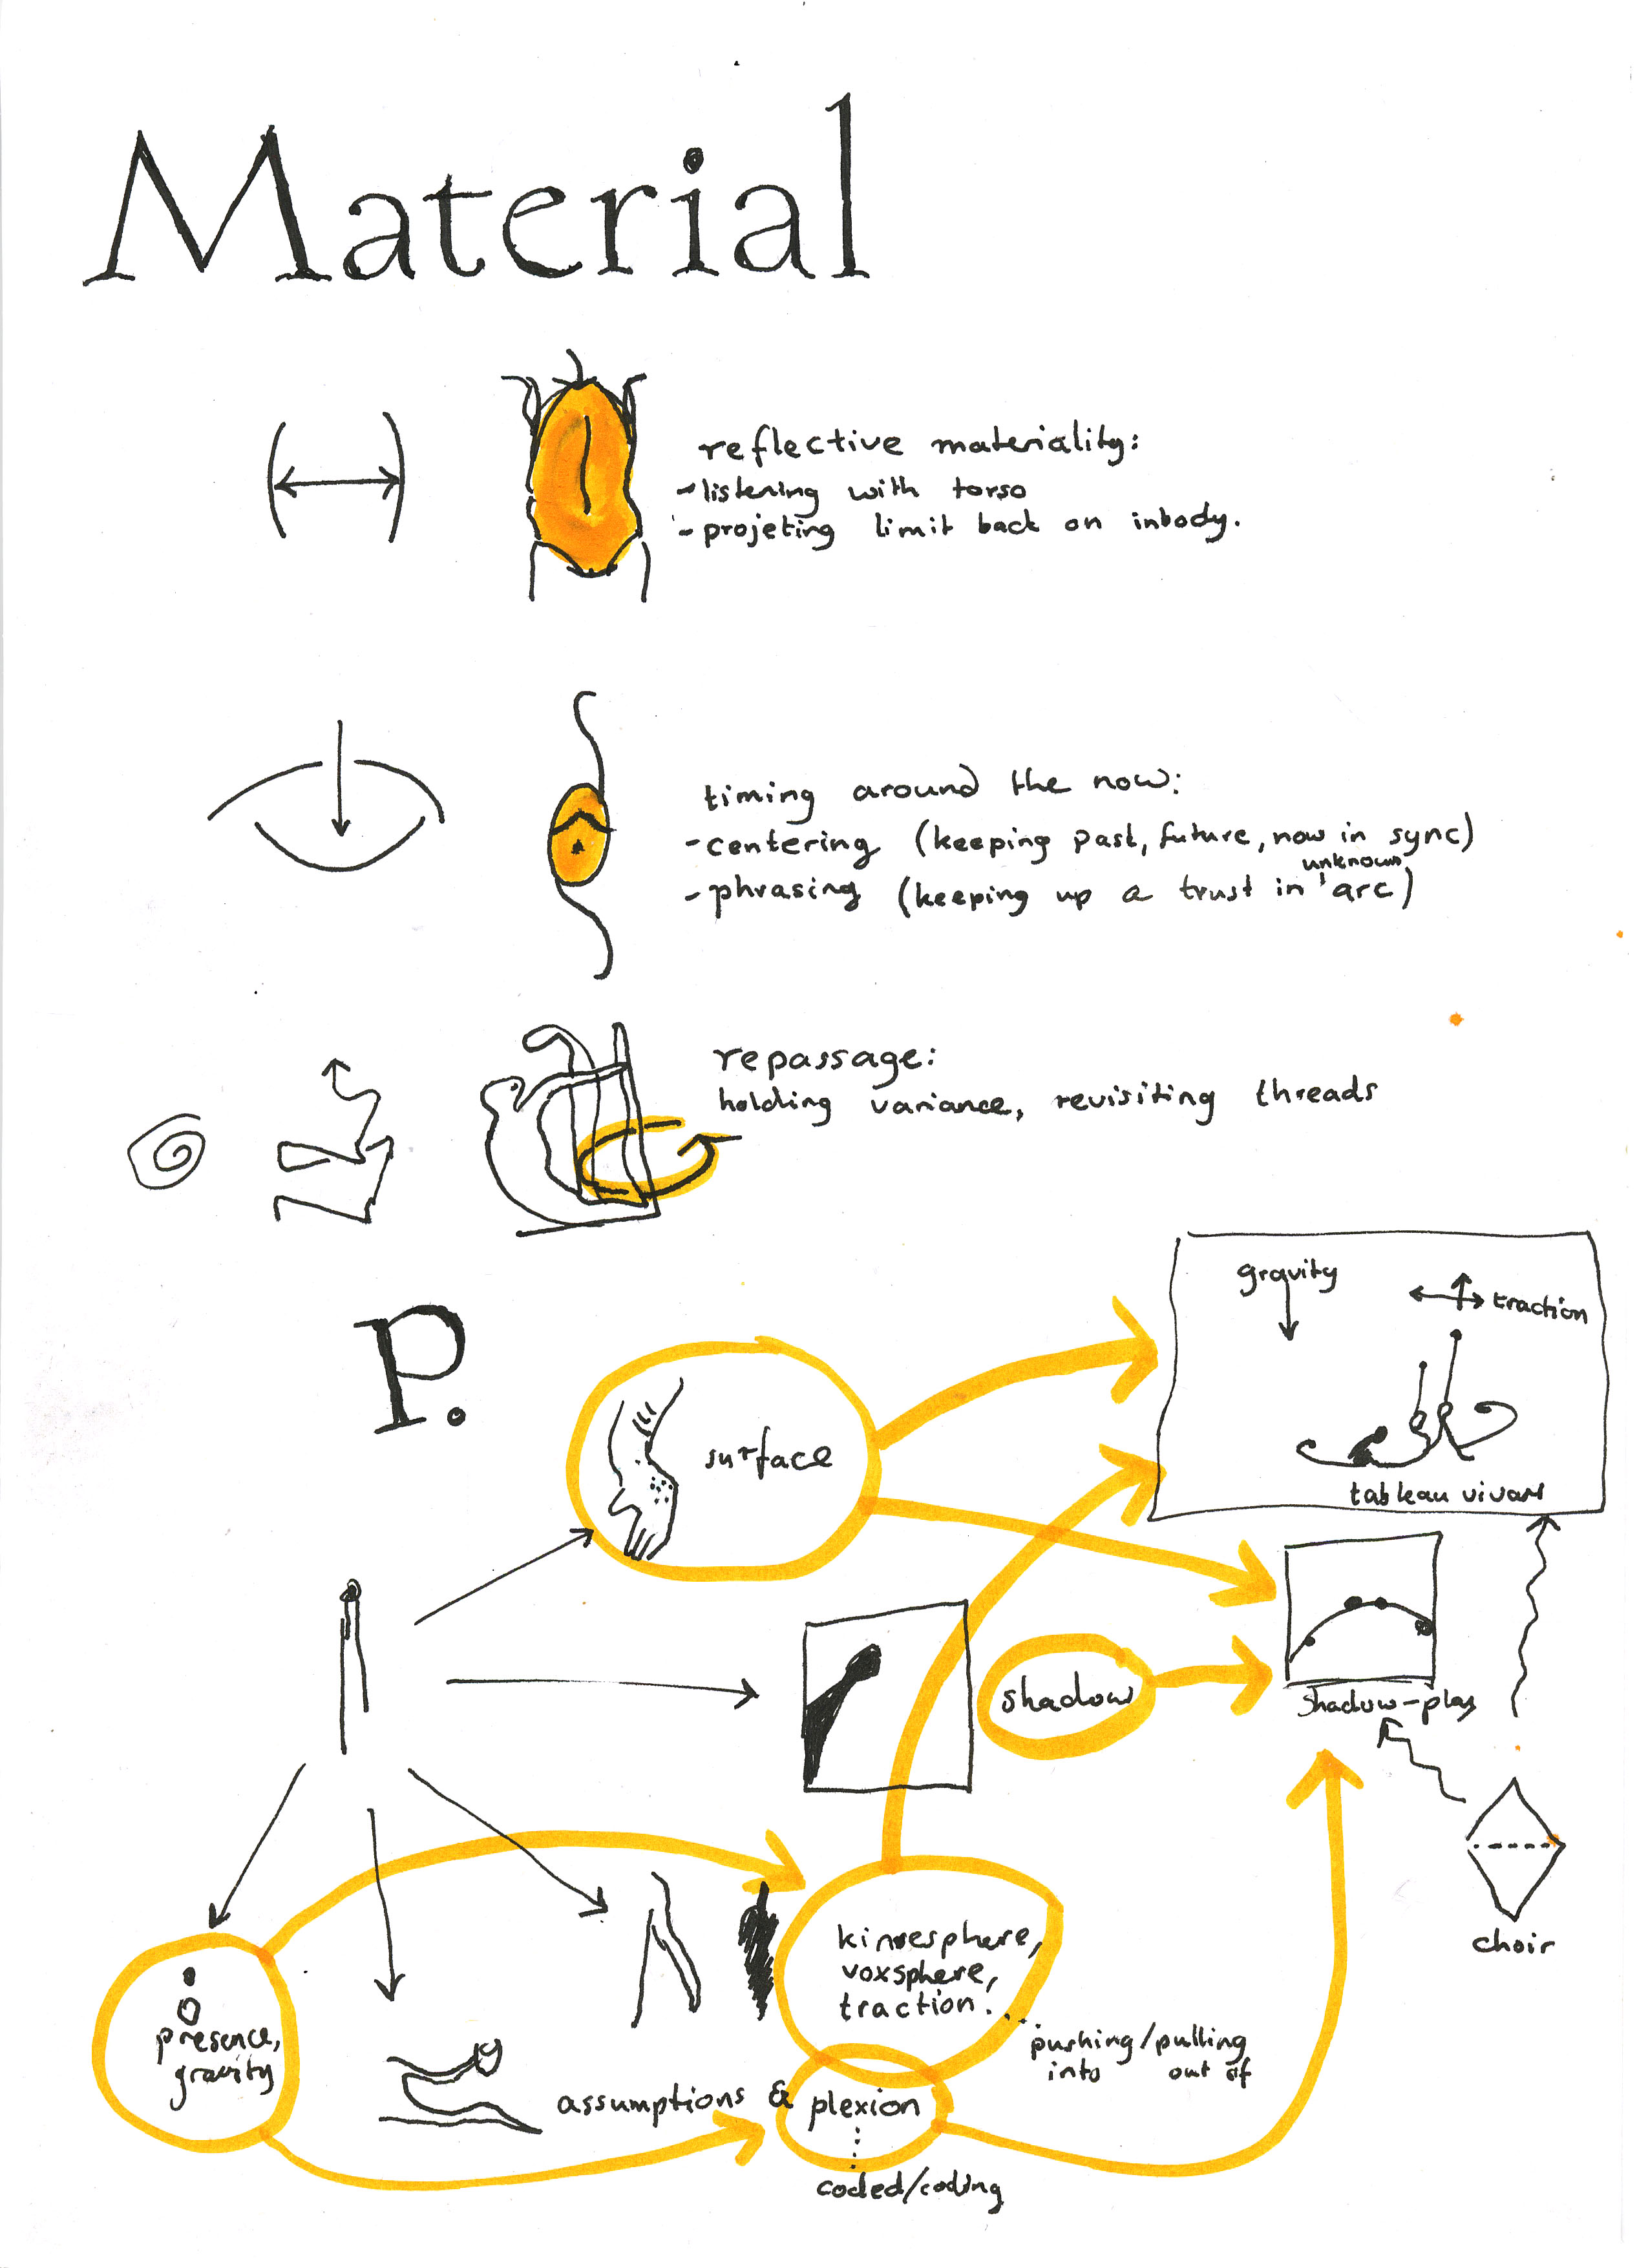 Material
reflective materiality:
- listening with torso
- projeting limit back on inbody.
timing around the now:
- centering (keeping past, future, now in sync)
unknown
- phrasing (keeping up a trust in arc)
repassage:
holding variance, revisiting threads
P.
gravity
traction
surface
tableau vivant
shadow
shadow-play
choir
kinesphere,
voxsphere,
traction...
pushing/pulling
into out of
presence,
gravity
assumptions & plexion
coded/coding